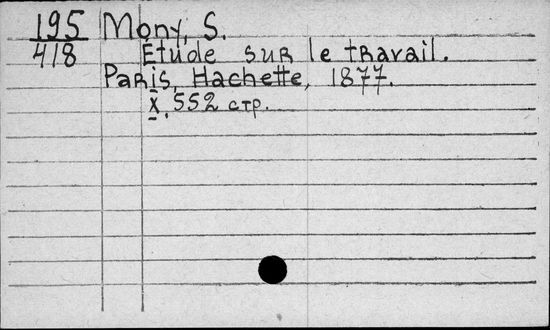 195 Mony, S.
418 Etude sur le travail.
Paris, Hachette, 1877.
X, 552 стр.